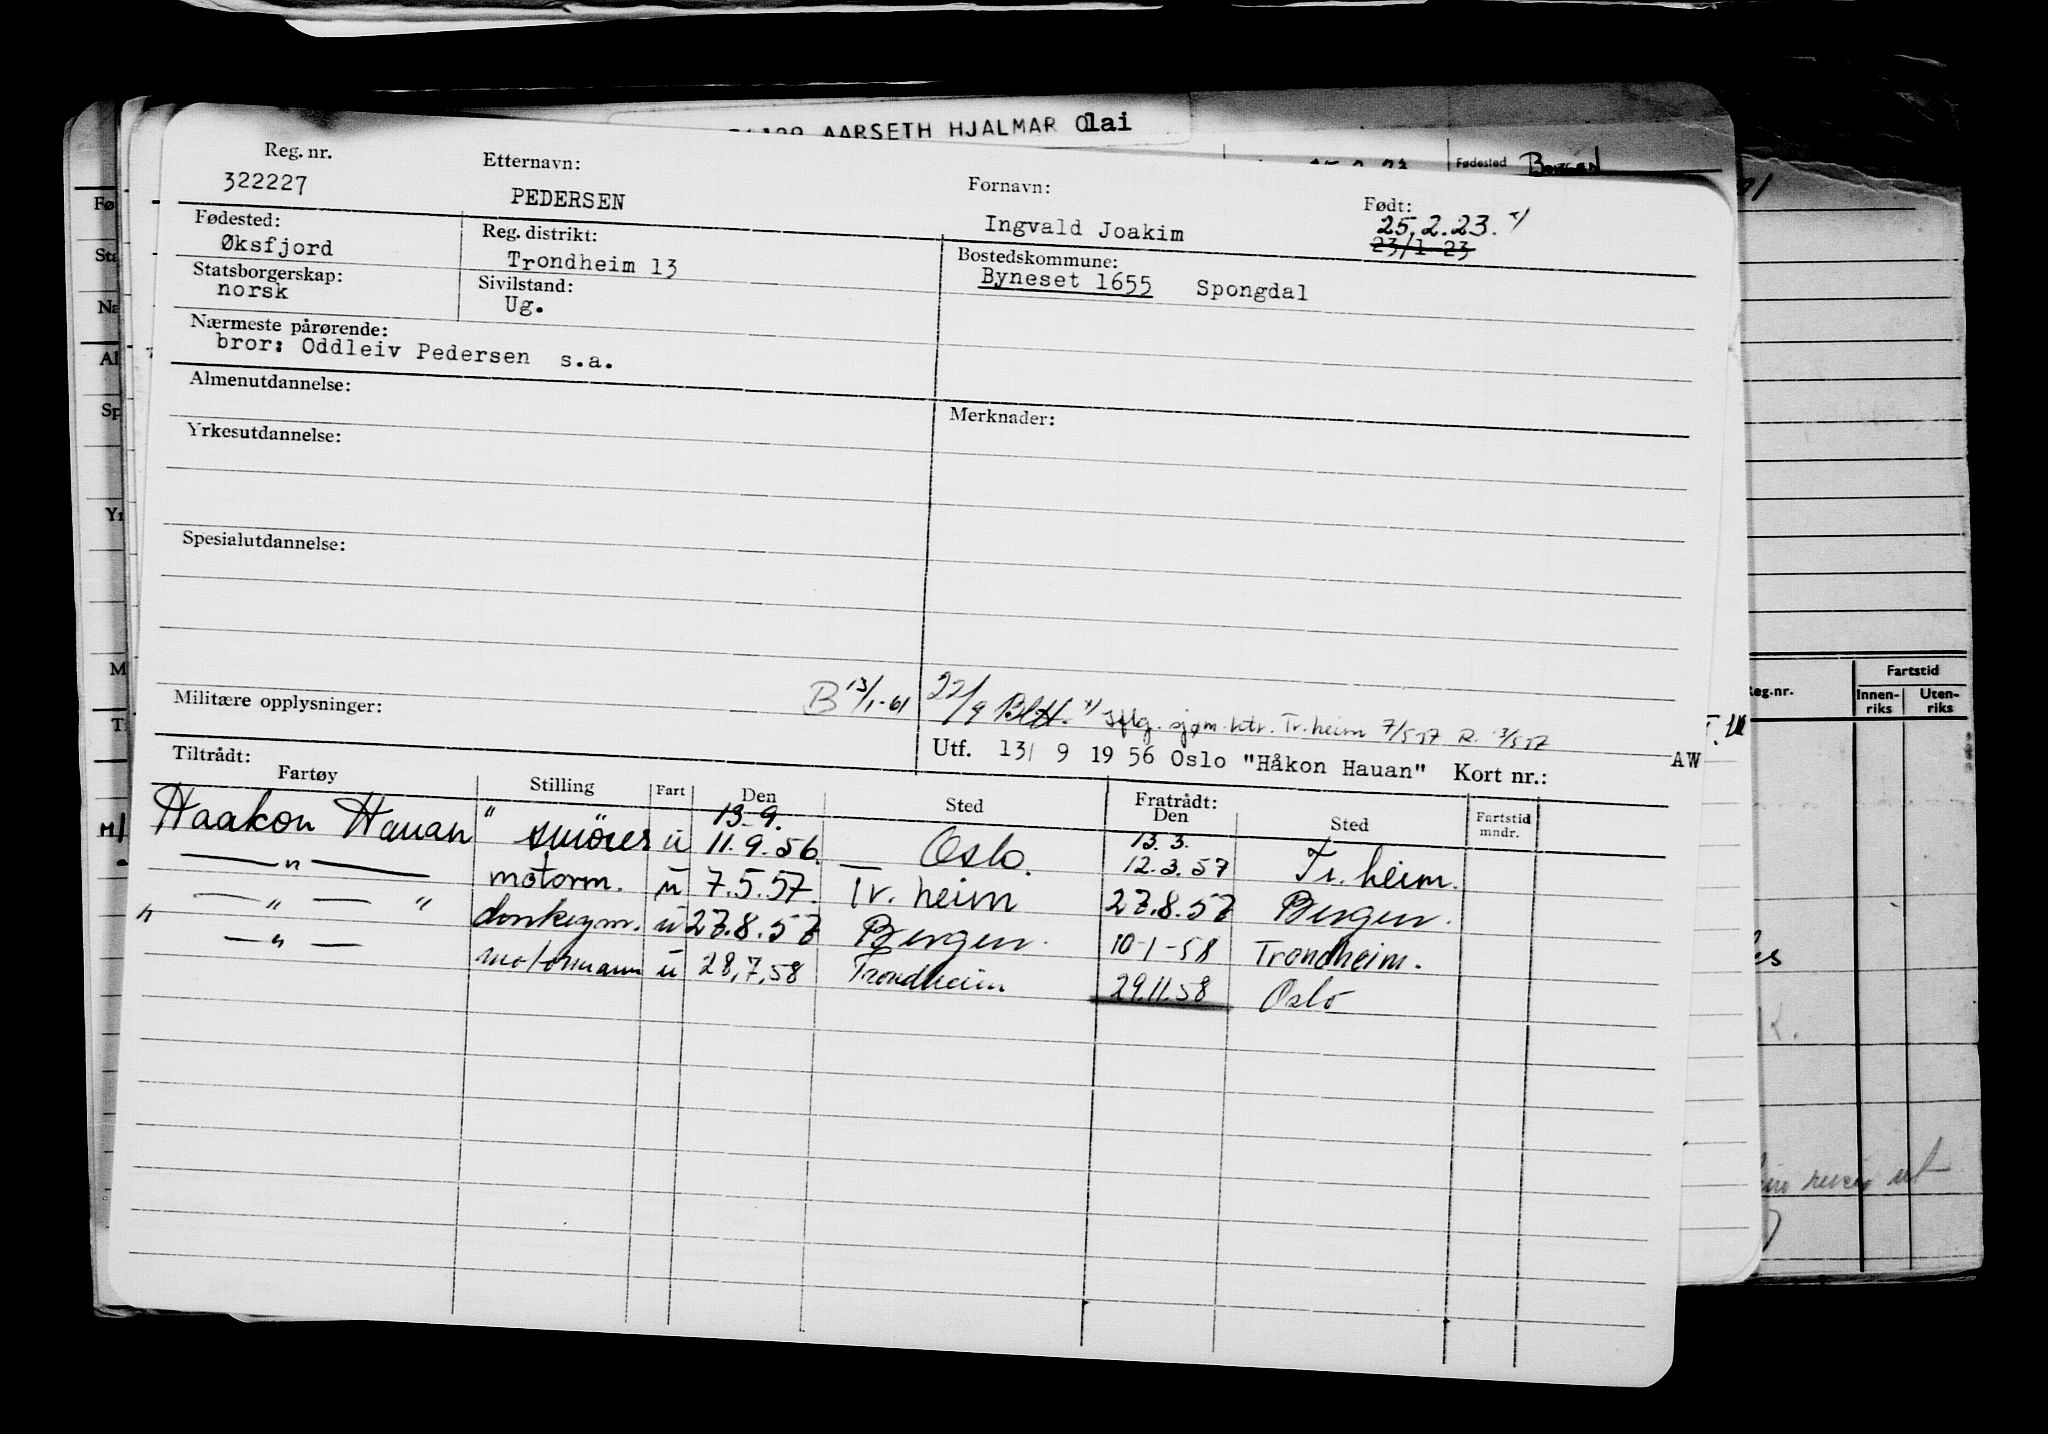 AARSETH HJALMAR Olai
Reg. nr. Etternavn: Fornavn: Født:
322227 PEDERSEN Ingvald Joakim 25.2.23. x)
23/1-23
Fødested: Reg. distrikt: Bostedskommune:
Øksfjord Trondheim 13 Byneset 1655 Spongdal
Statsborgerskap: Sivilstand:
norsk Ug.
Nærmeste pårørende:
bror: Oddleiv Pedersen s.a.
Almenutdannelse: Merknader:
Yrkesutdannelse:
Spesialutdannelse:
Militære opplysninger: B 13/1-61 22/9 x) Iflg. sjøm.ktr. Tr.heim 7/5 57 R. 13/5 57
Utf. 13/ 9 19 56 Oslo "Håkon Hauan" Kort nr.: AW
Tiltrådt: Fratrådt:
Fartøy Stilling Fart Den Sted Den Sted Fartstid mndr.
13.9. 13.3.
Haakon Hauan " smörer u 11.9.56. Oslo. 12.3.57 Tr.heim.
— " — motorm. u 7.5.57. Tr.heim 27.8.57 Bergen.
— " — " donkeym. u 27.8.57 Bergen. 10-1-58 Trondheim.
" — " — motormann u 28.7.58 Trondheim 29.11.58 Oslo
Fødested Bergen
Reg.nr. Fartstid
Innen-riks Uten-riks